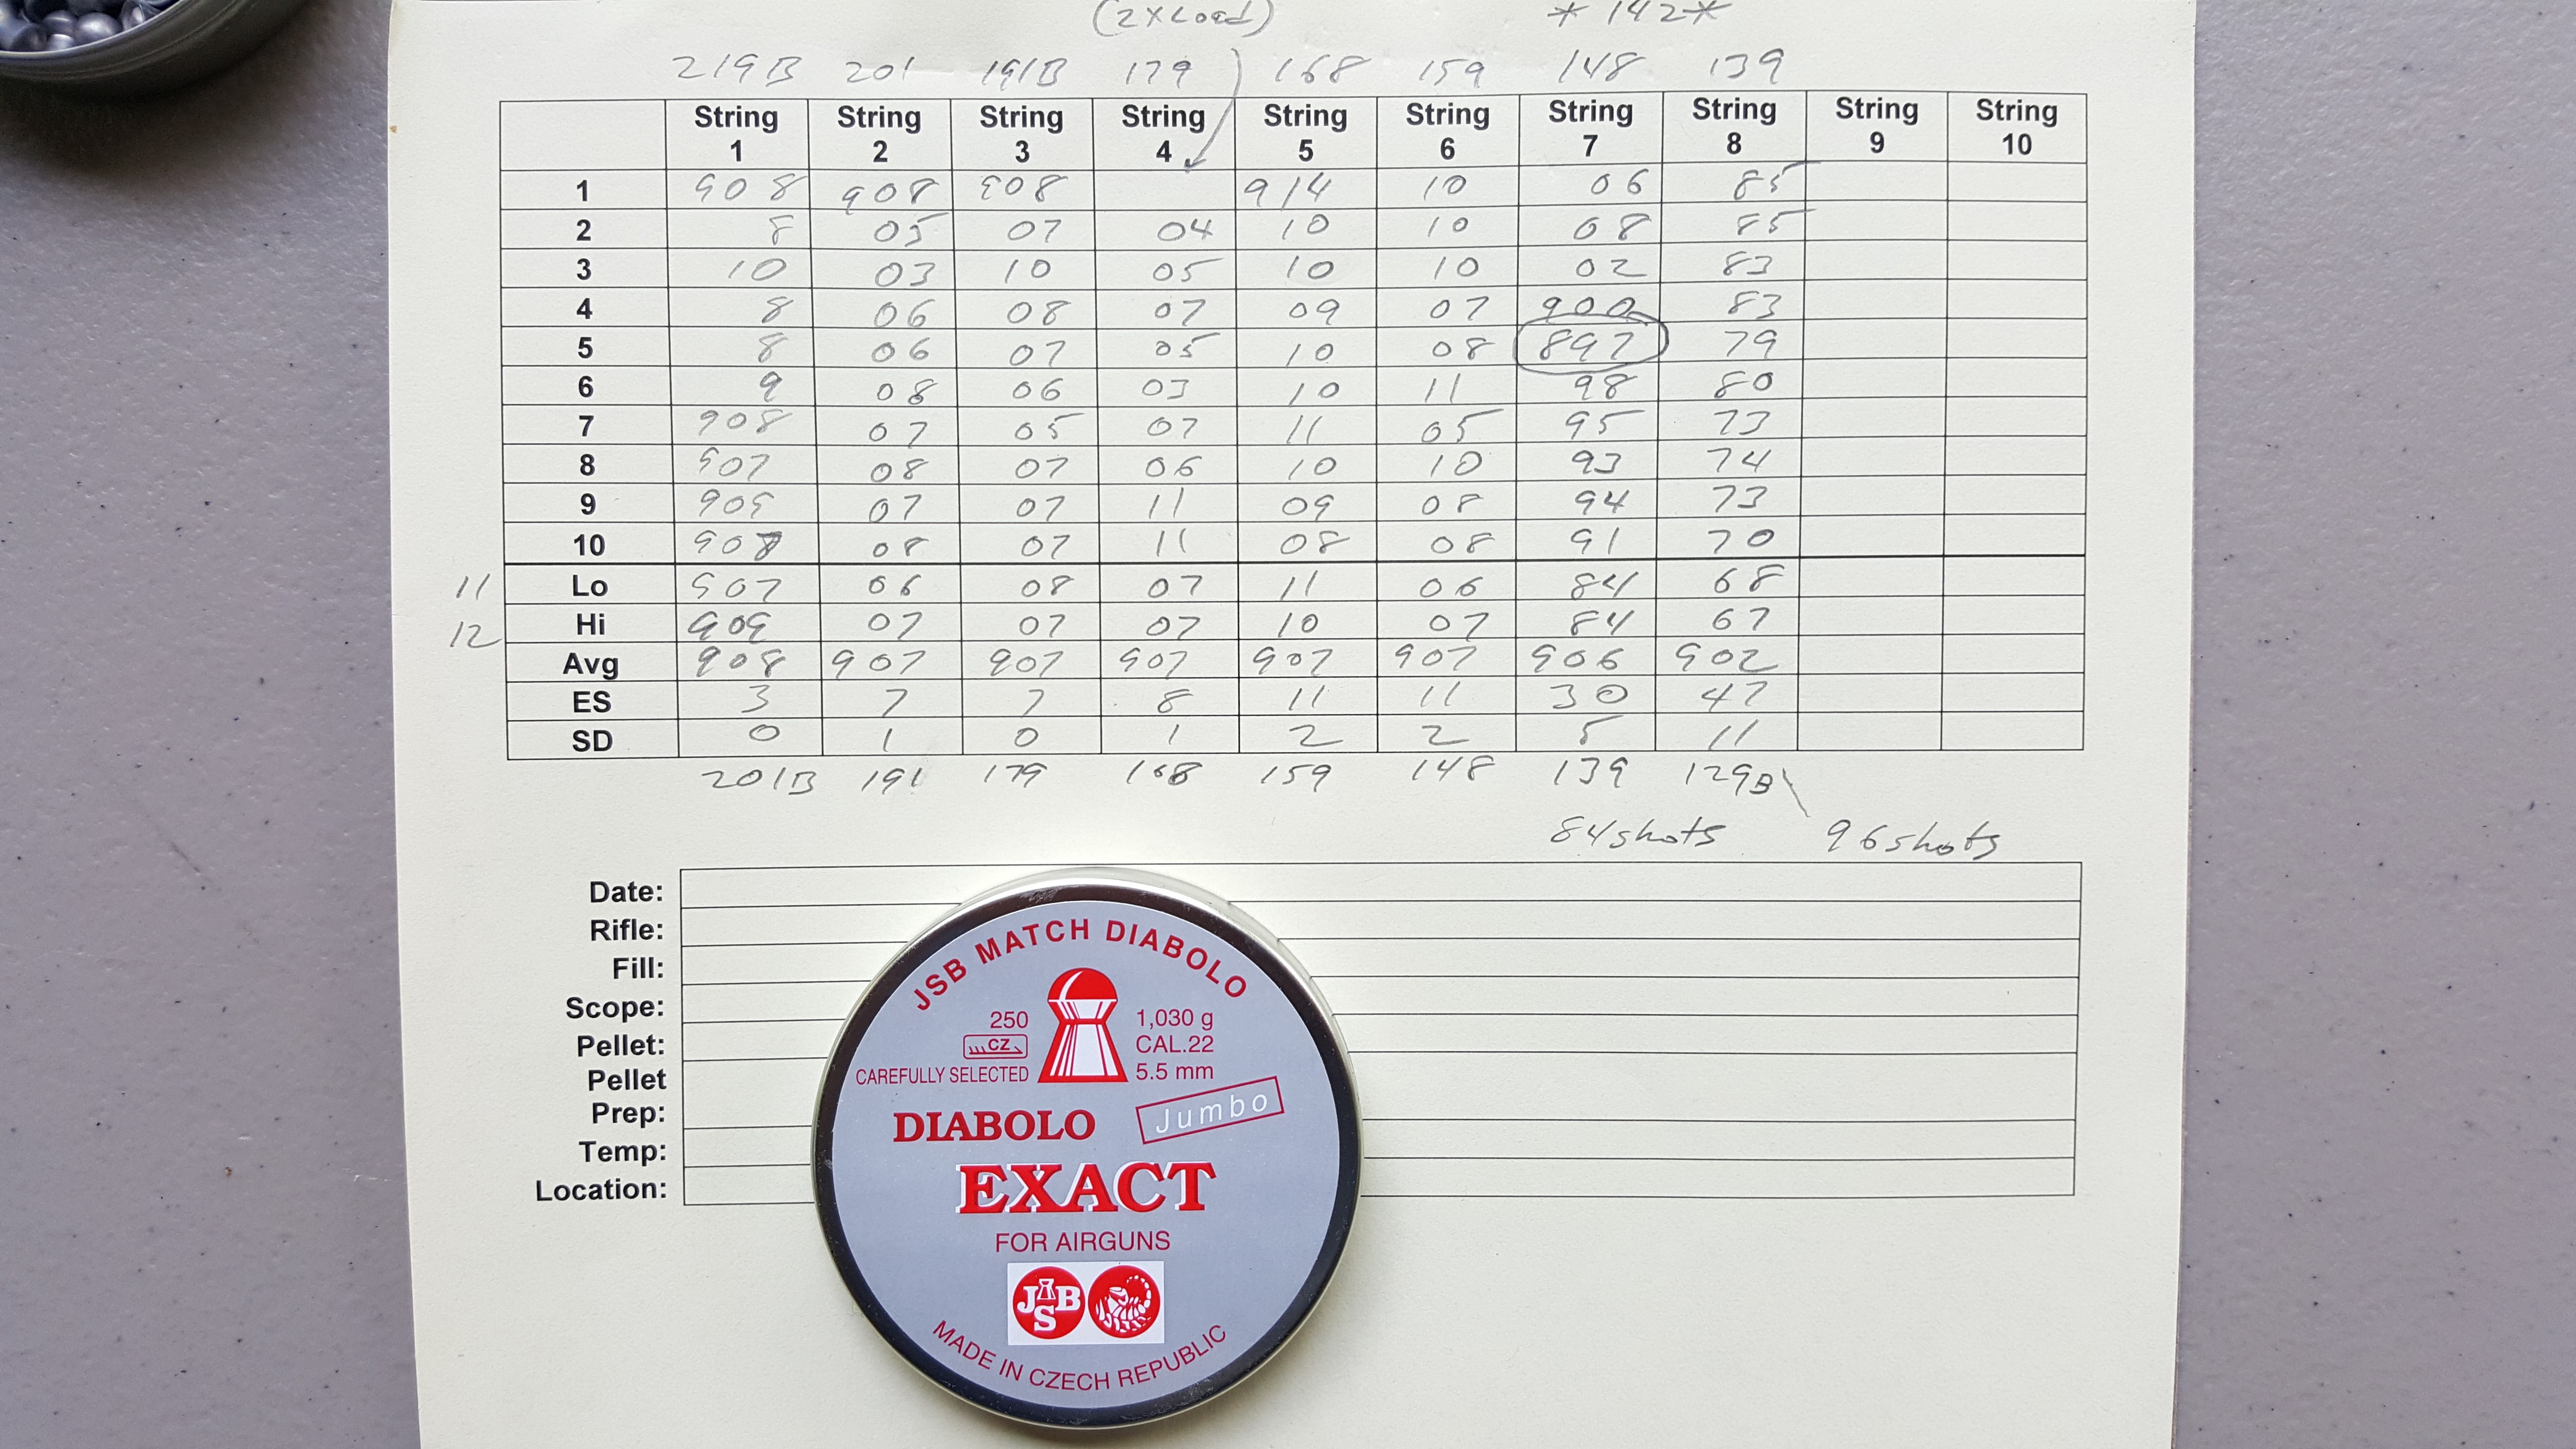 (2xLoad) *142*
219B 201 191B 179 168 159 148 139
String 1 String 2 String 3 String 4 String 5 String 6 String 7 String 8 String 9 String 10
1 908 908 908 914 10 06 85
2 8 05 07 04 10 10 08 85
3 10 03 10 05 10 10 02 83
4 8 06 08 07 09 07 900 83
5 8 06 07 05 10 08 897 79
6 9 08 06 03 10 11 98 80
7 908 07 05 07 11 05 95 73
8 907 08 07 06 10 10 93 74
9 909 07 07 11 09 08 94 73
10 908 08 07 11 08 08 91 70
11 Lo 907 06 08 07 11 06 84 68
12 Hi 909 07 07 07 10 07 84 67
Avg 908 907 907 907 907 907 906 902
ES 3 7 7 8 11 11 30 47
SD 0 1 0 1 2 2 5 11
201B 191 179 168 159 148 139 129B
84shots 96shots
Date:
Rifle:
Fill:
Scope:
Pellet:
Pellet Prep:
Temp:
Location:
JSB MATCH DIABOLO
250 1,030 g
CZ CAL.22
CAREFULLY SELECTED 5.5 mm
DIABOLO Jumbo
EXACT
FOR AIRGUNS
JSB
MADE IN CZECH REPUBLIC